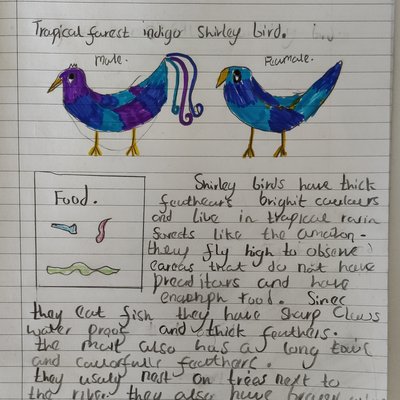 Tropical forest indigo Shirley bird.
Male.
Feumale.
Food.
Shirley birds have thick
feathears bright coulours
and live in tropical rarin
forests like the amazon.
they fly high to observe
careas that do not have
preaditars and have
enaphph food. Since
they eat fish they have sharp claws
water proof and thick feathers.
the male also has a long tail
and coulorfulle feathers.
they usaly nest on trees next to
the river they also have